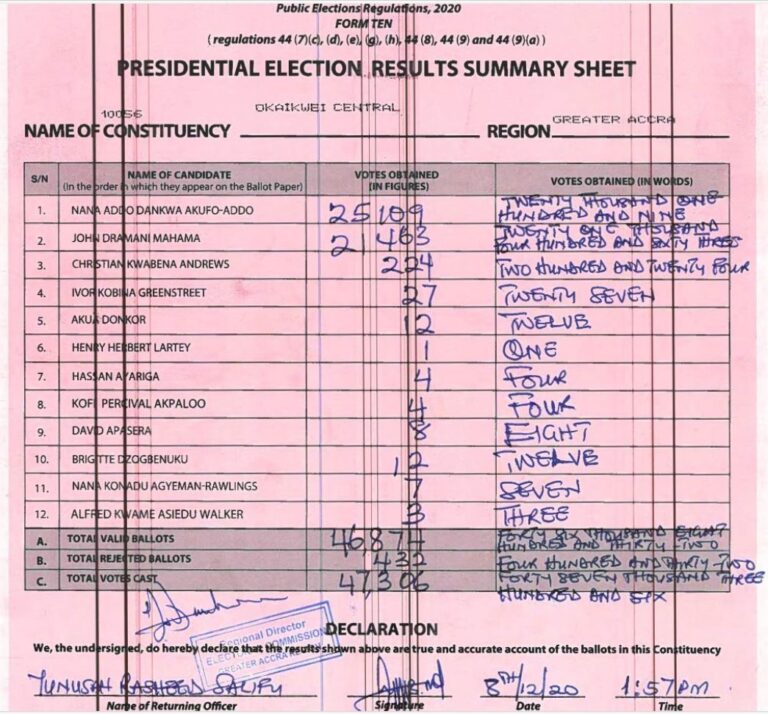 Public Elections Regulations, 2020
FORM TEN
( regulations 44 (7)(c), (d), (e), (g), (h), 44 (8), 44 (9) and 44 (9)(a) )
PRESIDENTIAL ELECTION RESULTS SUMMARY SHEET
10056 OKAIKWEI CENTRAL GREATER ACCRA
NAME OF CONSTITUENCY REGION
S/N NAME OF CANDIDATE (In the order in which they appear on the Ballot Paper) VOTES OBTAINED (IN FIGURES) VOTES OBTAINED (IN WORDS)
1. NANA ADDO DANKWA AKUFO-ADDO 25109 TWENTY THOUSAND ONE HUNDRED AND NINE
2. JOHN DRAMANI MAHAMA 21463 TWENTY ONE THOUSAND FOUR HUNDRED AND SIXTY THREE
3. CHRISTIAN KWABENA ANDREWS 224 TWO HUNDRED AND TWENTY FOUR
4. IVOR KOBINA GREENSTREET 27 TWENTY SEVEN
5. AKUA DONKOR 12 TWELVE
6. HENRY HERBERT LARTEY 1 ONE
7. HASSAN AYARIGA 4 FOUR
8. KOFI PERCIVAL AKPALOO 4 FOUR
9. DAVID APASERA 8 EIGHT
10. BRIGITTE DZOGBENUKU 12 TWELVE
11. NANA KONADU AGYEMAN-RAWLINGS 7 SEVEN
12. ALFRED KWAME ASIEDU WALKER 3 THREE
A. TOTAL VALID BALLOTS 46,874 FORTY SIX THOUSAND EIGHT HUNDRED AND THIRTY-TWO
B. TOTAL REJECTED BALLOTS 432 FOUR HUNDRED AND THIRTY-TWO
C. TOTAL VOTES CAST 47,306 FORTY SEVEN THOUSAND THREE HUNDRED AND SIX
Regional Director
ELECTORAL COMMISSION
GREATER ACCRA REGION
DECLARATION
We, the undersigned, do hereby declare that the results shown above are true and accurate account of the ballots in this Constituency
YUNUSAH RASHEED SALIFU 8TH/12/20 1:57PM
Name of Returning Officer Signature Date Time